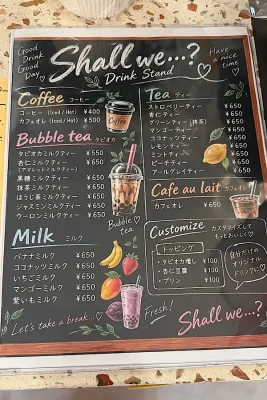 Good
Drink
Good
Day
Shall we...?
Drink Stand
Have a
nice
time
Coffee コーヒー
コーヒー (Iced / Hot) ¥400
カフェオレ (Iced / Hot) ¥500
Coffee
Bubble tea タピオカ
タピオカミルクティー ¥550
杏仁ミルクティー ¥650
(アマレットミルクティー)
黒糖ミルクティー ¥650
抹茶ミルクティー ¥650
ほうじ茶ミルクティー ¥650
ジャスミンミルクティー ¥650
ウーロンミルクティー ¥650
Bubble
tea
Milk ミルク
バナナミルク ¥650
ココナッツミルク ¥650
いちごミルク ¥650
マンゴーミルク ¥650
紫いもミルク ¥650
Let's take a break...
Tea ティー
ストロベリーティー ¥650
杏仁ティー ¥650
グリーンティー (抹茶) ¥650
マンゴーティー ¥650
ココナッツティー ¥650
レモンティー ¥650
ミントティー ¥650
ピーチティー ¥650
アールグレイティー ¥650
Cafe au lait カフェオレ
カフェオレ ¥650
Customize カスタマイズして
もっとおいしく
トッピング
・タピオカ増し ¥100
・杏仁豆腐 ¥100
・プリン ¥100
自分だけの
オリジナル
ドリンクに
Fresh!
Shall we...?